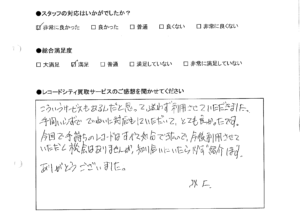 ●スタッフの対応はいかがでしたか？
☑非常に良かった □良かった □普通 □良くない □非常に良くない
●総合満足度
□大満足 ☑満足 □普通 □満足していない □非常に満足していない
●レコードシティ買取サービスのご感想を聞かせてください
こういうサービスもあるんだと思って、はじめて利用させていただきました。
ていねいに対応もしていただいて、とても良かったです。
今回で手持ちのレコードはすべて処分で、今後利用させて
いただく機会はありませんが、知り合いにいたら必ず紹介します。
ありがとうございました。
以上